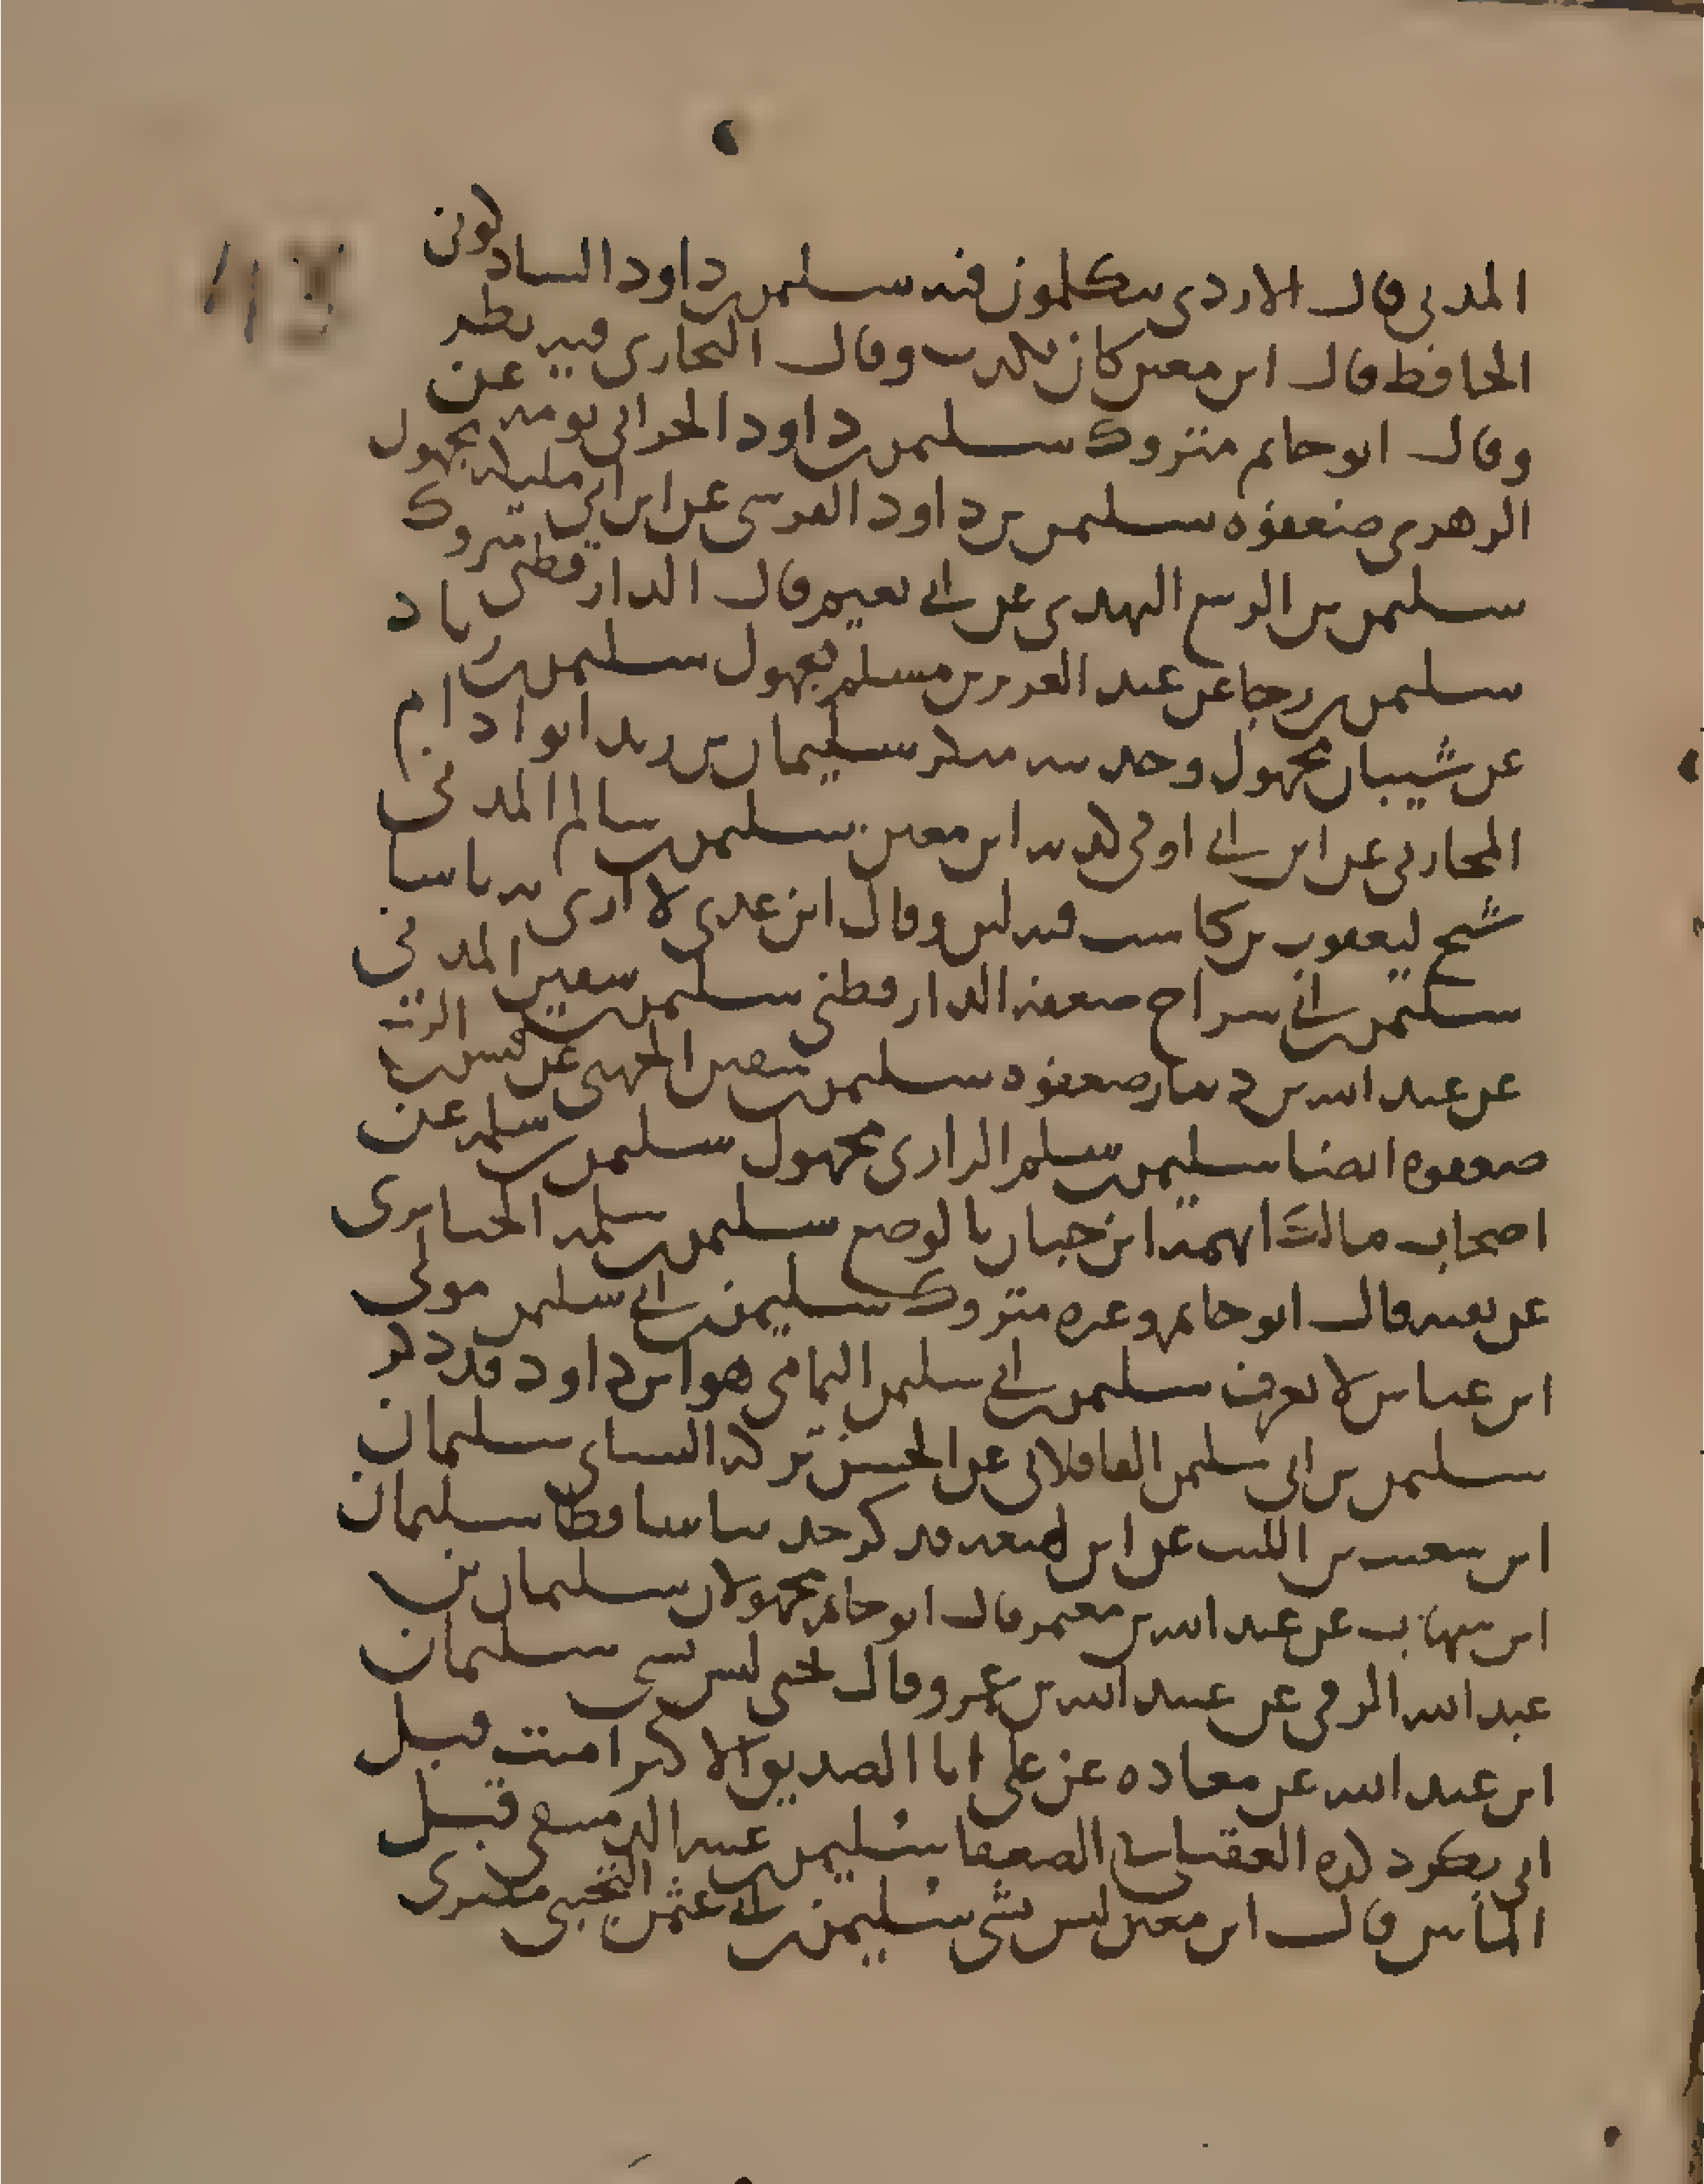 المدني قال الازدي يتكلمون فيه سليمن بن داود الشاذكوني
الحافظ قال ابن معين كان يكذب وقال البخاري فيه نظر
وقال ابو حاتم متروك سليمن بن داود الحراني بومه عن
الزهري ضعفوه سليمن بن داود القرشي عن ابن ابي مليكة مجهول
سليمن بن الربيع النهدي عن ابي نعيم قال الدارقطني متروك
سليمن بن رجا عن عبد العزيز بن مسلم مجهول سليمن بن زياد
عن شيبان مجهول وحديثه منكر سليمان بن زيد ابو ادام
المحاربي عن ابن ابي اوفى كذبه ابن معين سليمن بن سالم المدني
شيخ ليعقوب بن كاسب فيه لين وقال ابن عدي لا ارى به باسا
سليمن بن ابي سراج ضعفه الدارقطني سليمن بن سفين المدني
عن عبد الله بن دينار ضعفوه سليمن بن سفين الجهني عن قيس بن الربيع
ضعفوه ايضا سليمن بن سلم الرازي مجهول سليمن بن سلمة عن
اصحاب مالك اتهمه ابن حبان بالوضع سليمن بن سلمة الخبايري
عن بقية قال ابو حاتم وغيره متروك سليمن بن ابي سليمن مولى
ابن عباس لا يعرف سليمن بن ابي سليمن اليمامي هو ابن داود قد ذكر
سليمن بن ابي سليمن القافلاني عن الحسن تركه النساي سليمان
ابن شعيب بن الليث عن ابن لهيعة قد ذكر حديثا ساقطا سليمان
ابن شهاب عن عبد الله بن معمر قال ابو حاتم مجهولان سليمان بن
عبد الله الرقي عن عبيد الله بن عمرو قال يحيى ليس بشي سليمان
ابن عبد الله عن معاذه عن علي انا الصديق الاكبر امنت قبل
ابي بكر ذكره العقيلي في الضعفا سليمن بن عبيد الله الدمشقي قبل
المأتين قال ابن معين ليس بشي سليمن بن ابي عثمن التجيبي مصري